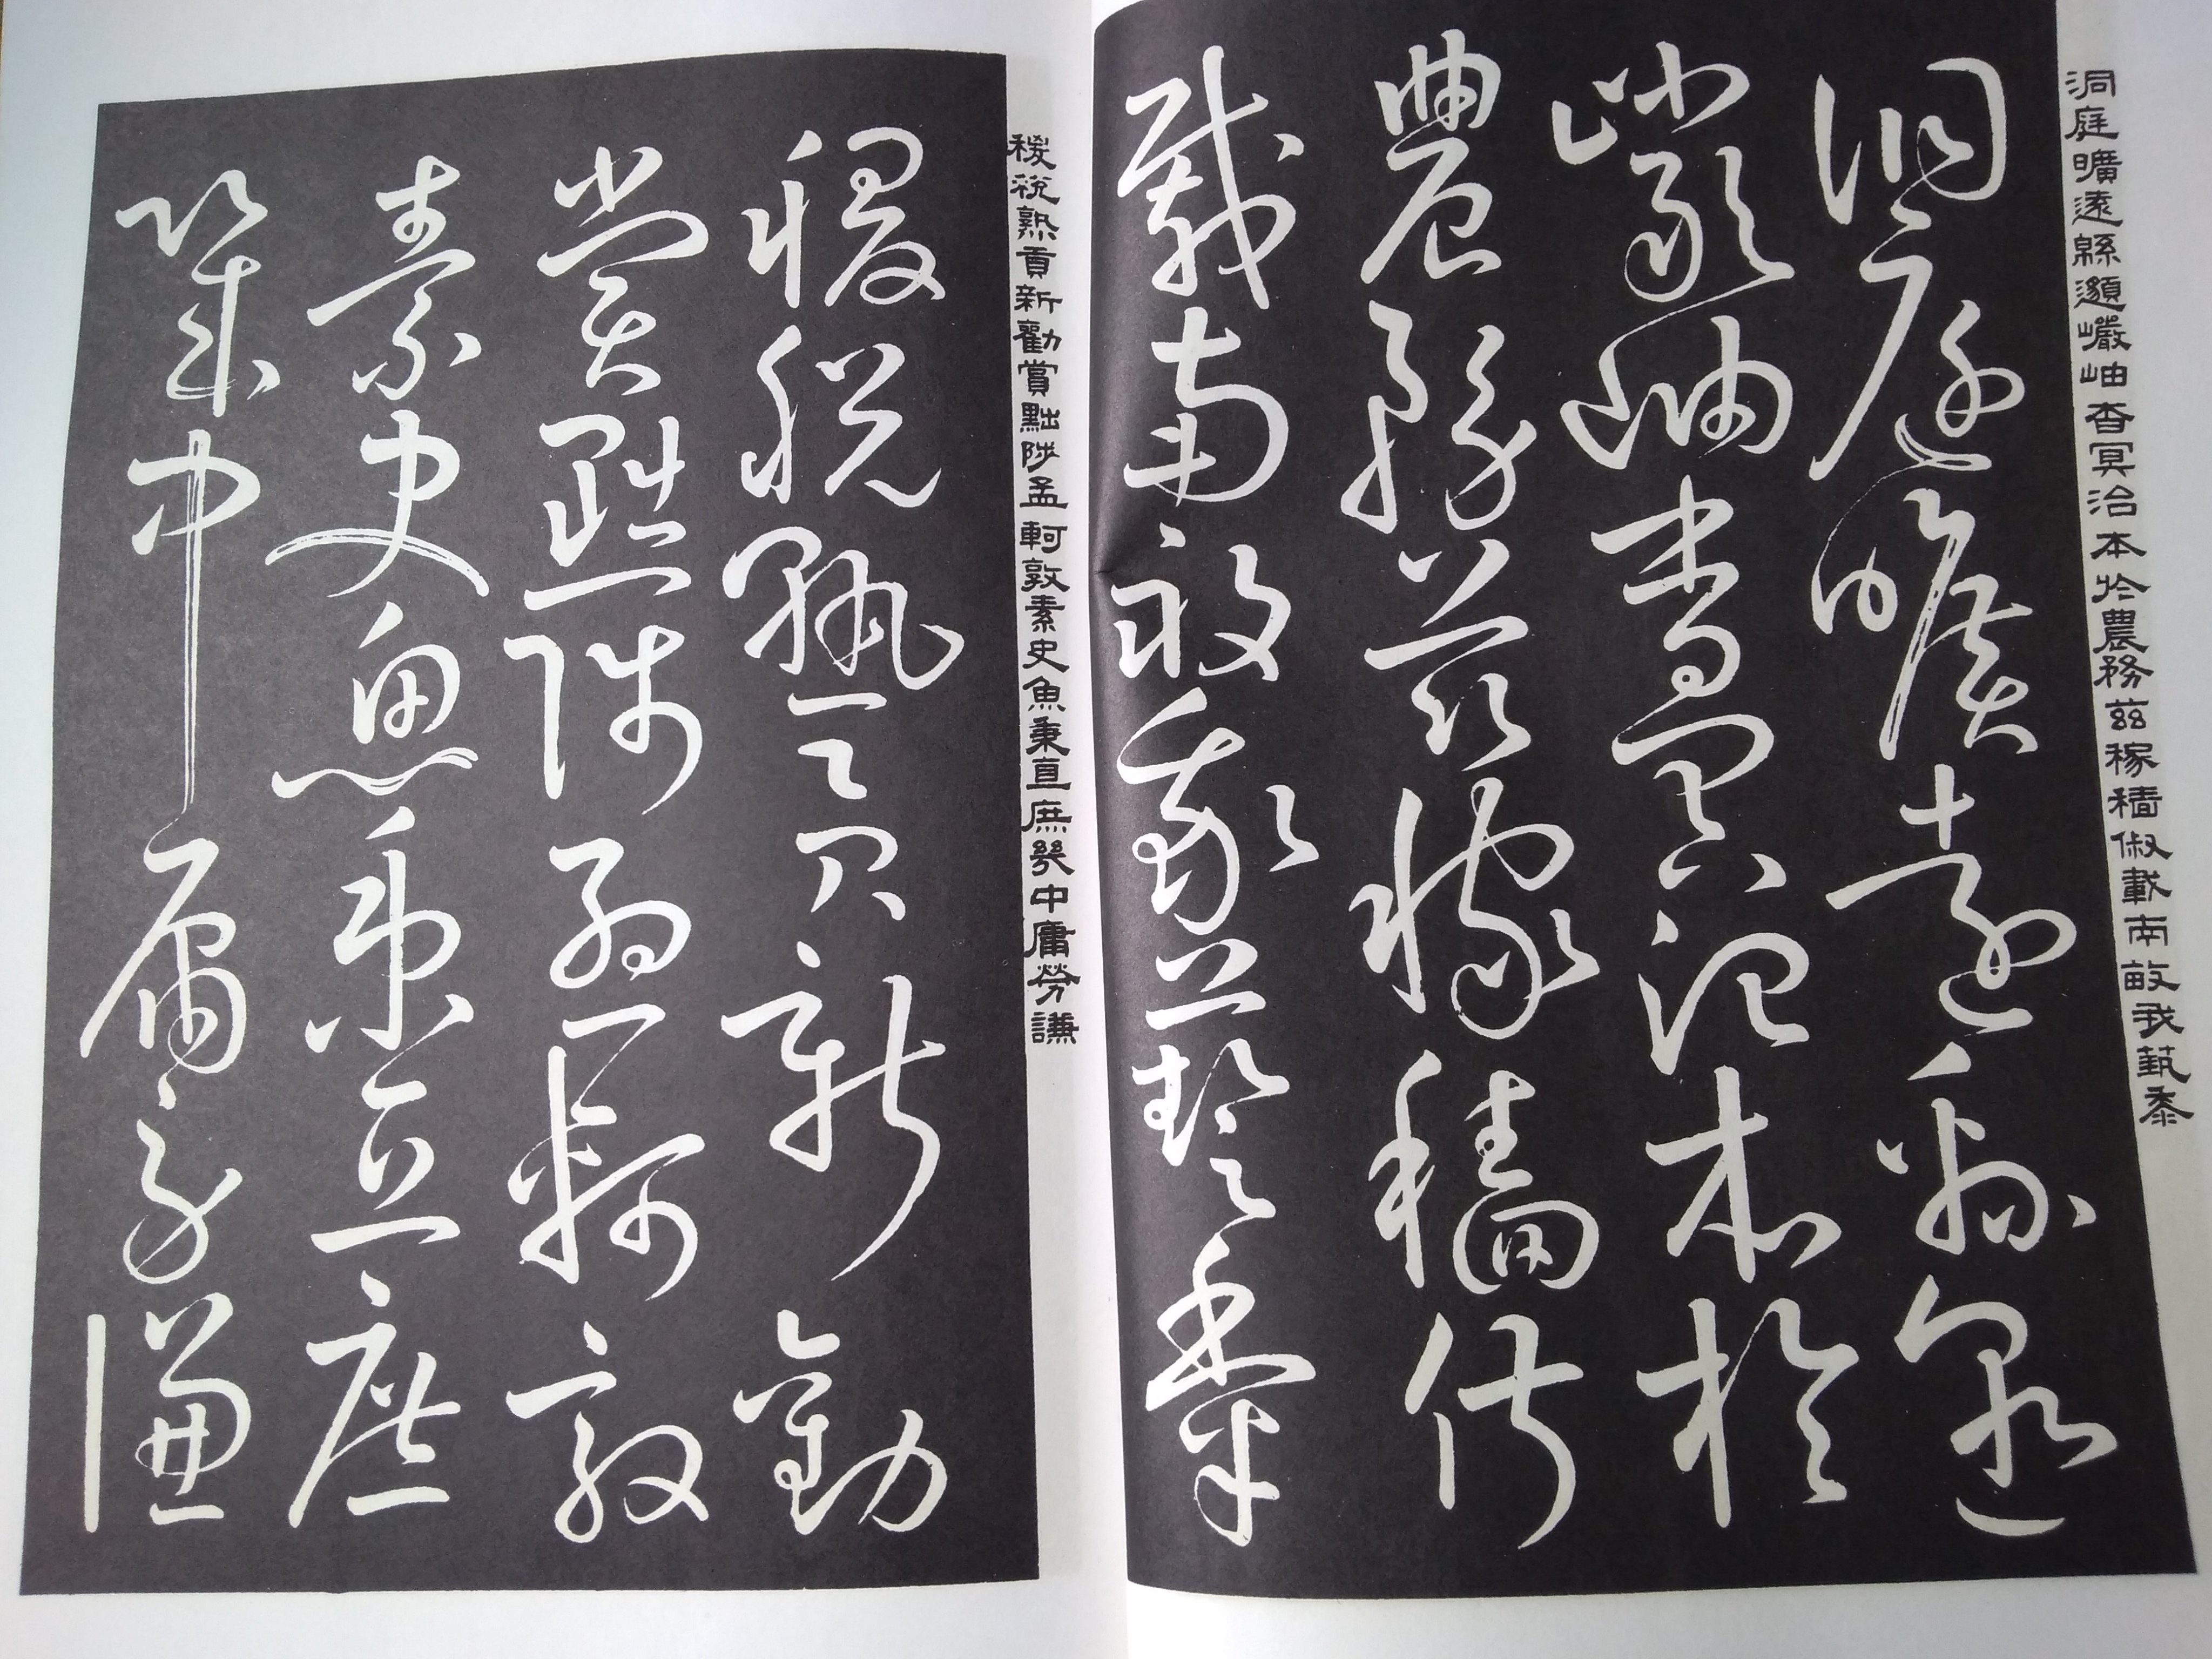 洞庭曠遠緜邈巖岫杳冥治本於農務茲稼穡俶載南畝我蓺黍
洞庭曠遠緜邈
巖岫杳冥治本於
農務茲稼穡俶
載南畝我蓺黍
稷稅熟貢新勸賞黜陟孟軻敦素史魚秉直庶幾中庸勞謙
稷稅熟貢新勸
賞黜陟孟軻敦
素史魚秉直庶
幾中庸勞謙